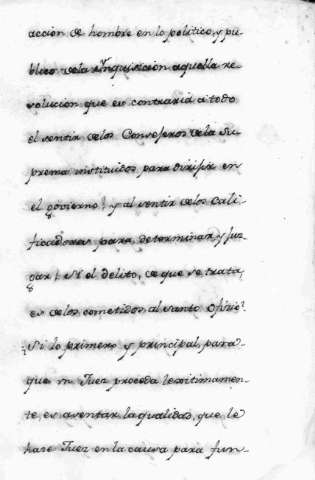 accion de hombre en lo politico, y pu-
blico de la Ynquisicion aquella re-
solucion que es contraria a todo
el sentir de los Consejeros de la Su-
prema instituidos para dirijir en
el govierno? y al sentir de los Cali-
ficadores para determinar y juz-
gar? Si el delito, de que se trata,
es de los cometidos al Santo Ofizio?
Si lo primero y principal para
que un Juez proceda lexitimamen-
te, es asentar la qualidad, que le
haze Juez en la causa para fun-